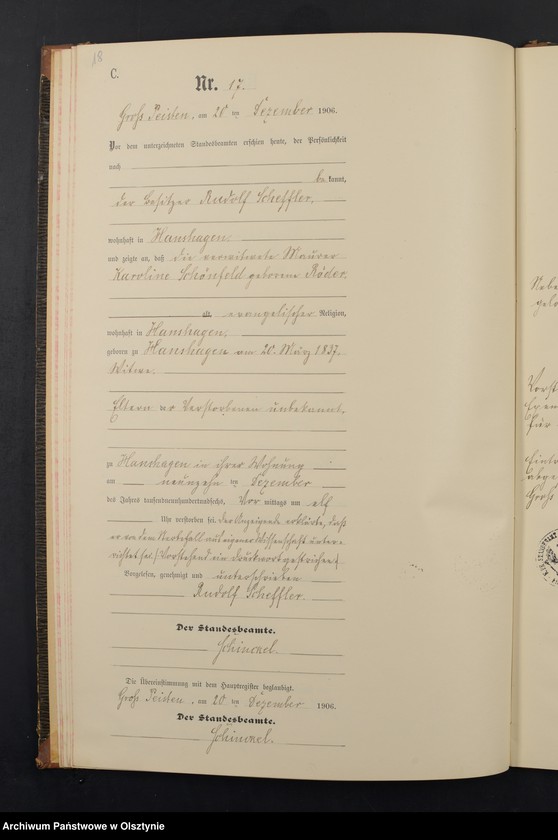 18
C.
Nr. 17.
Groß Peisten, am 20 ten Dezember 1906.
Vor dem unterzeichneten Standesbeamten erschien heute, der Persönlichkeit
nach
be kannt,
der Besitzer Rudolf Scheffler,
wohnhaft in Hanshagen,
und zeigte an, daß die verwitwete Maurer
Karoline Schönfeld geborene Röder,
alt, evangelischer Religion,
wohnhaft in Hanshagen,
geboren zu Hanshagen am 20. März 1837.
Witwe.
Eltern der Verstorbenen unbekannt,
zu Hanshagen in ihrer Wohnung
am neunzehn ten Dezember
des Jahres tausendneunhundertundsechs, Vor mittags um elf
Uhr verstorben sei. Der Anzeigende erklärte, daß
er von dem Sterbefall aus eigener Wissenschaft unter-
richtet sei. (Vorstehend ein Druckwort gestrichen).
Vorgelesen, genehmigt und unterschrieben
Rudolf Scheffler.
Der Standesbeamte.
Die Übereinstimmung mit dem Hauptregister beglaubigt.
Groß Peisten, am 20 ten Dezember 1906.
Der Standesbeamte.
Archiwum Państwowe w Olsztynie